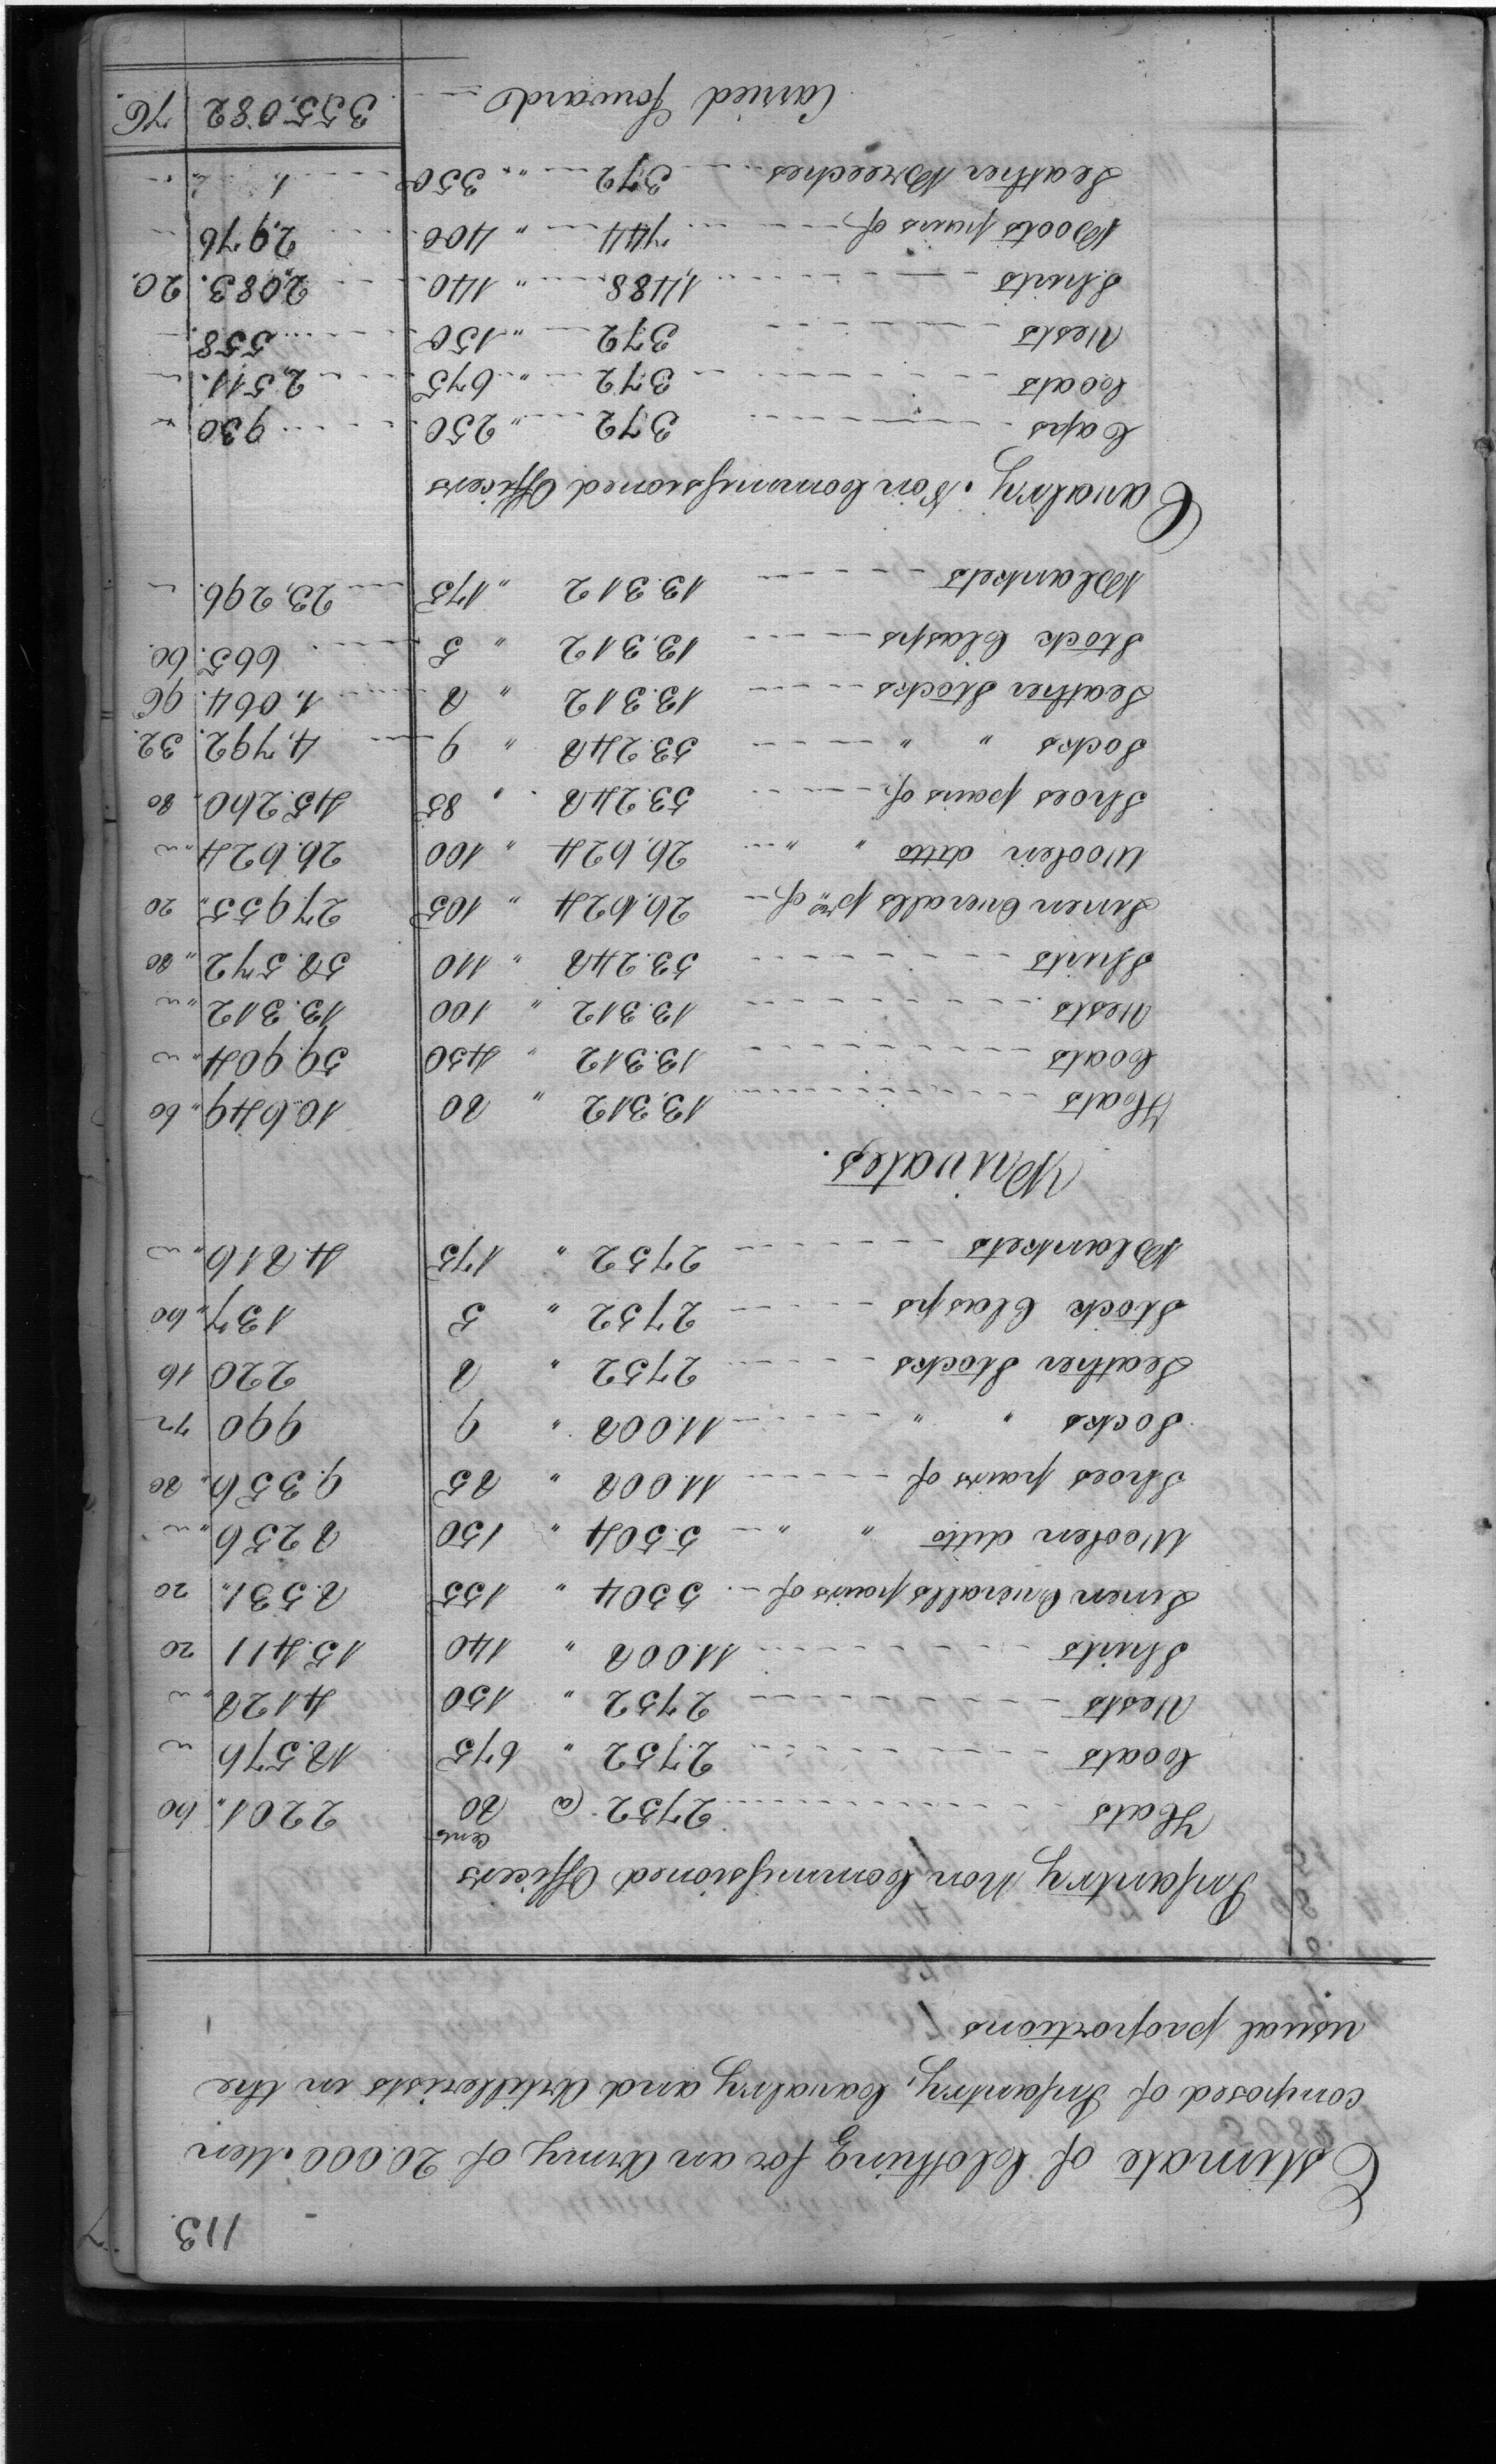 113.
Estimate of Clothing for an Army of 20.000 Men
composed of Infantry, Cavalry and Artillerists in the
usual proportions
Infantry Non Commissioned Officers
Hats 2752 @ 80 Cents 2201 " 60
Coats 2.752 " 675 18.576 "
Vests 2752 " 150 4128 "
Shirts 11.008 " 140 15.411 20
Linen Overalls pairs of 5504 " 155 8.531 " 20
Woolen ditto " " 5.504 " 150 8256 " "
Shoes pairs of 11.008 " 85 9.356 " 80
Socks " " 11.008 " 9 990 72
Leather Stocks 2752 " 8 220 16
Stock Clasps 2752 " 5 137 " 60
Blankets 2752 " 175 4.816 " "
Privates.
Hats 13,312 " 80 10.649 " 60
Coats 13.312 " 450 59.904 " "
Vests 13.312 " 100 13.312 " "
Shirts 53.248 " 110 58.572 " 80
Linen Overalls prs of 26,624 " 105 27955 " 20
Woolen ditto " " 26,624 " 100 26.624 " "
Shoes pairs of 53.248 " 85 45.260 " 80
Socks " " 53.248 " 9 4,792. 32.
Leather Stocks 13.312 " 8 1,064. 96
Stock Clasps 13,312 " 5 665. 60.
Blankets 13.312 " 175 23,296. "
Cavalry, Non Commissioned Officers
Caps 372 " 250 930 "
Coats 372 " 675 2,511. "
Vests 372 " 150 558.
Shirts 1,488 " 140 2,083. 20.
Boots pairs of 744 " 400 2,976
Leather Breeches 372 " 350
Carried forward 355,082 76.